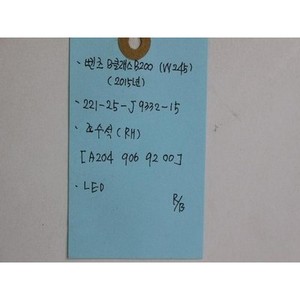 · 벤츠 B클래스 B200 (W245)
(2015년)
· 221-25-J9332-15
· 조수석 (RH)
[A204 906 92 00]
· LED
R/B